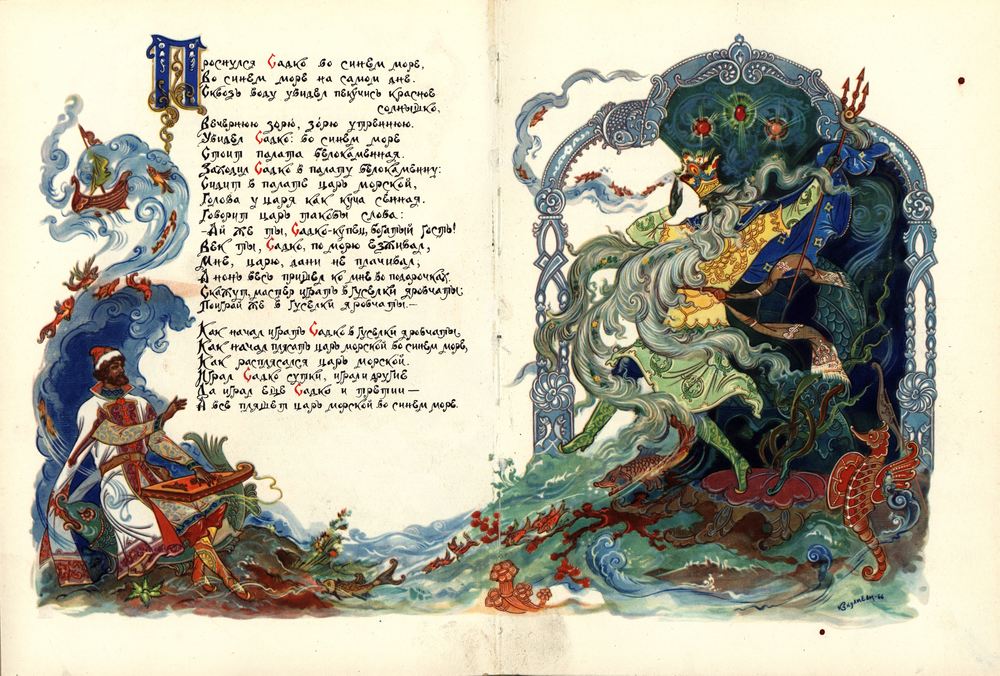 Проснулся Садко во синем море,
Во синем море на самом дне.
Сквозь воду увидел пекучись красное
солнышко,
Вечернюю зорю, зорю утреннюю.
Увидел Садко: во синем море
Стоит палата белокаменная.
Заходил Садко в палату белокаменну:
Сидит в палате царь морской,
Голова у царя как куча сенная.
Говорит царь таковы слова:
–Ай же ты, Садко-купец, богатый гость!
Век ты, Садко, по морю езживал,
Мне, царю, дани не плачивал,
А нонь весь пришел ко мне во подарочках.
Скажут, мастер играть в гусельки яровчаты;
Поиграй же в гусельки яровчаты.—
Как начал играть Садко в гусельки яровчаты,
Как начал плясать царь морской во синем море,
Как расплясался царь морской.
Играл Садко сутки, играл и другие
Да играл еще Садко и третии —
А все пляшет царь морской во синем море.